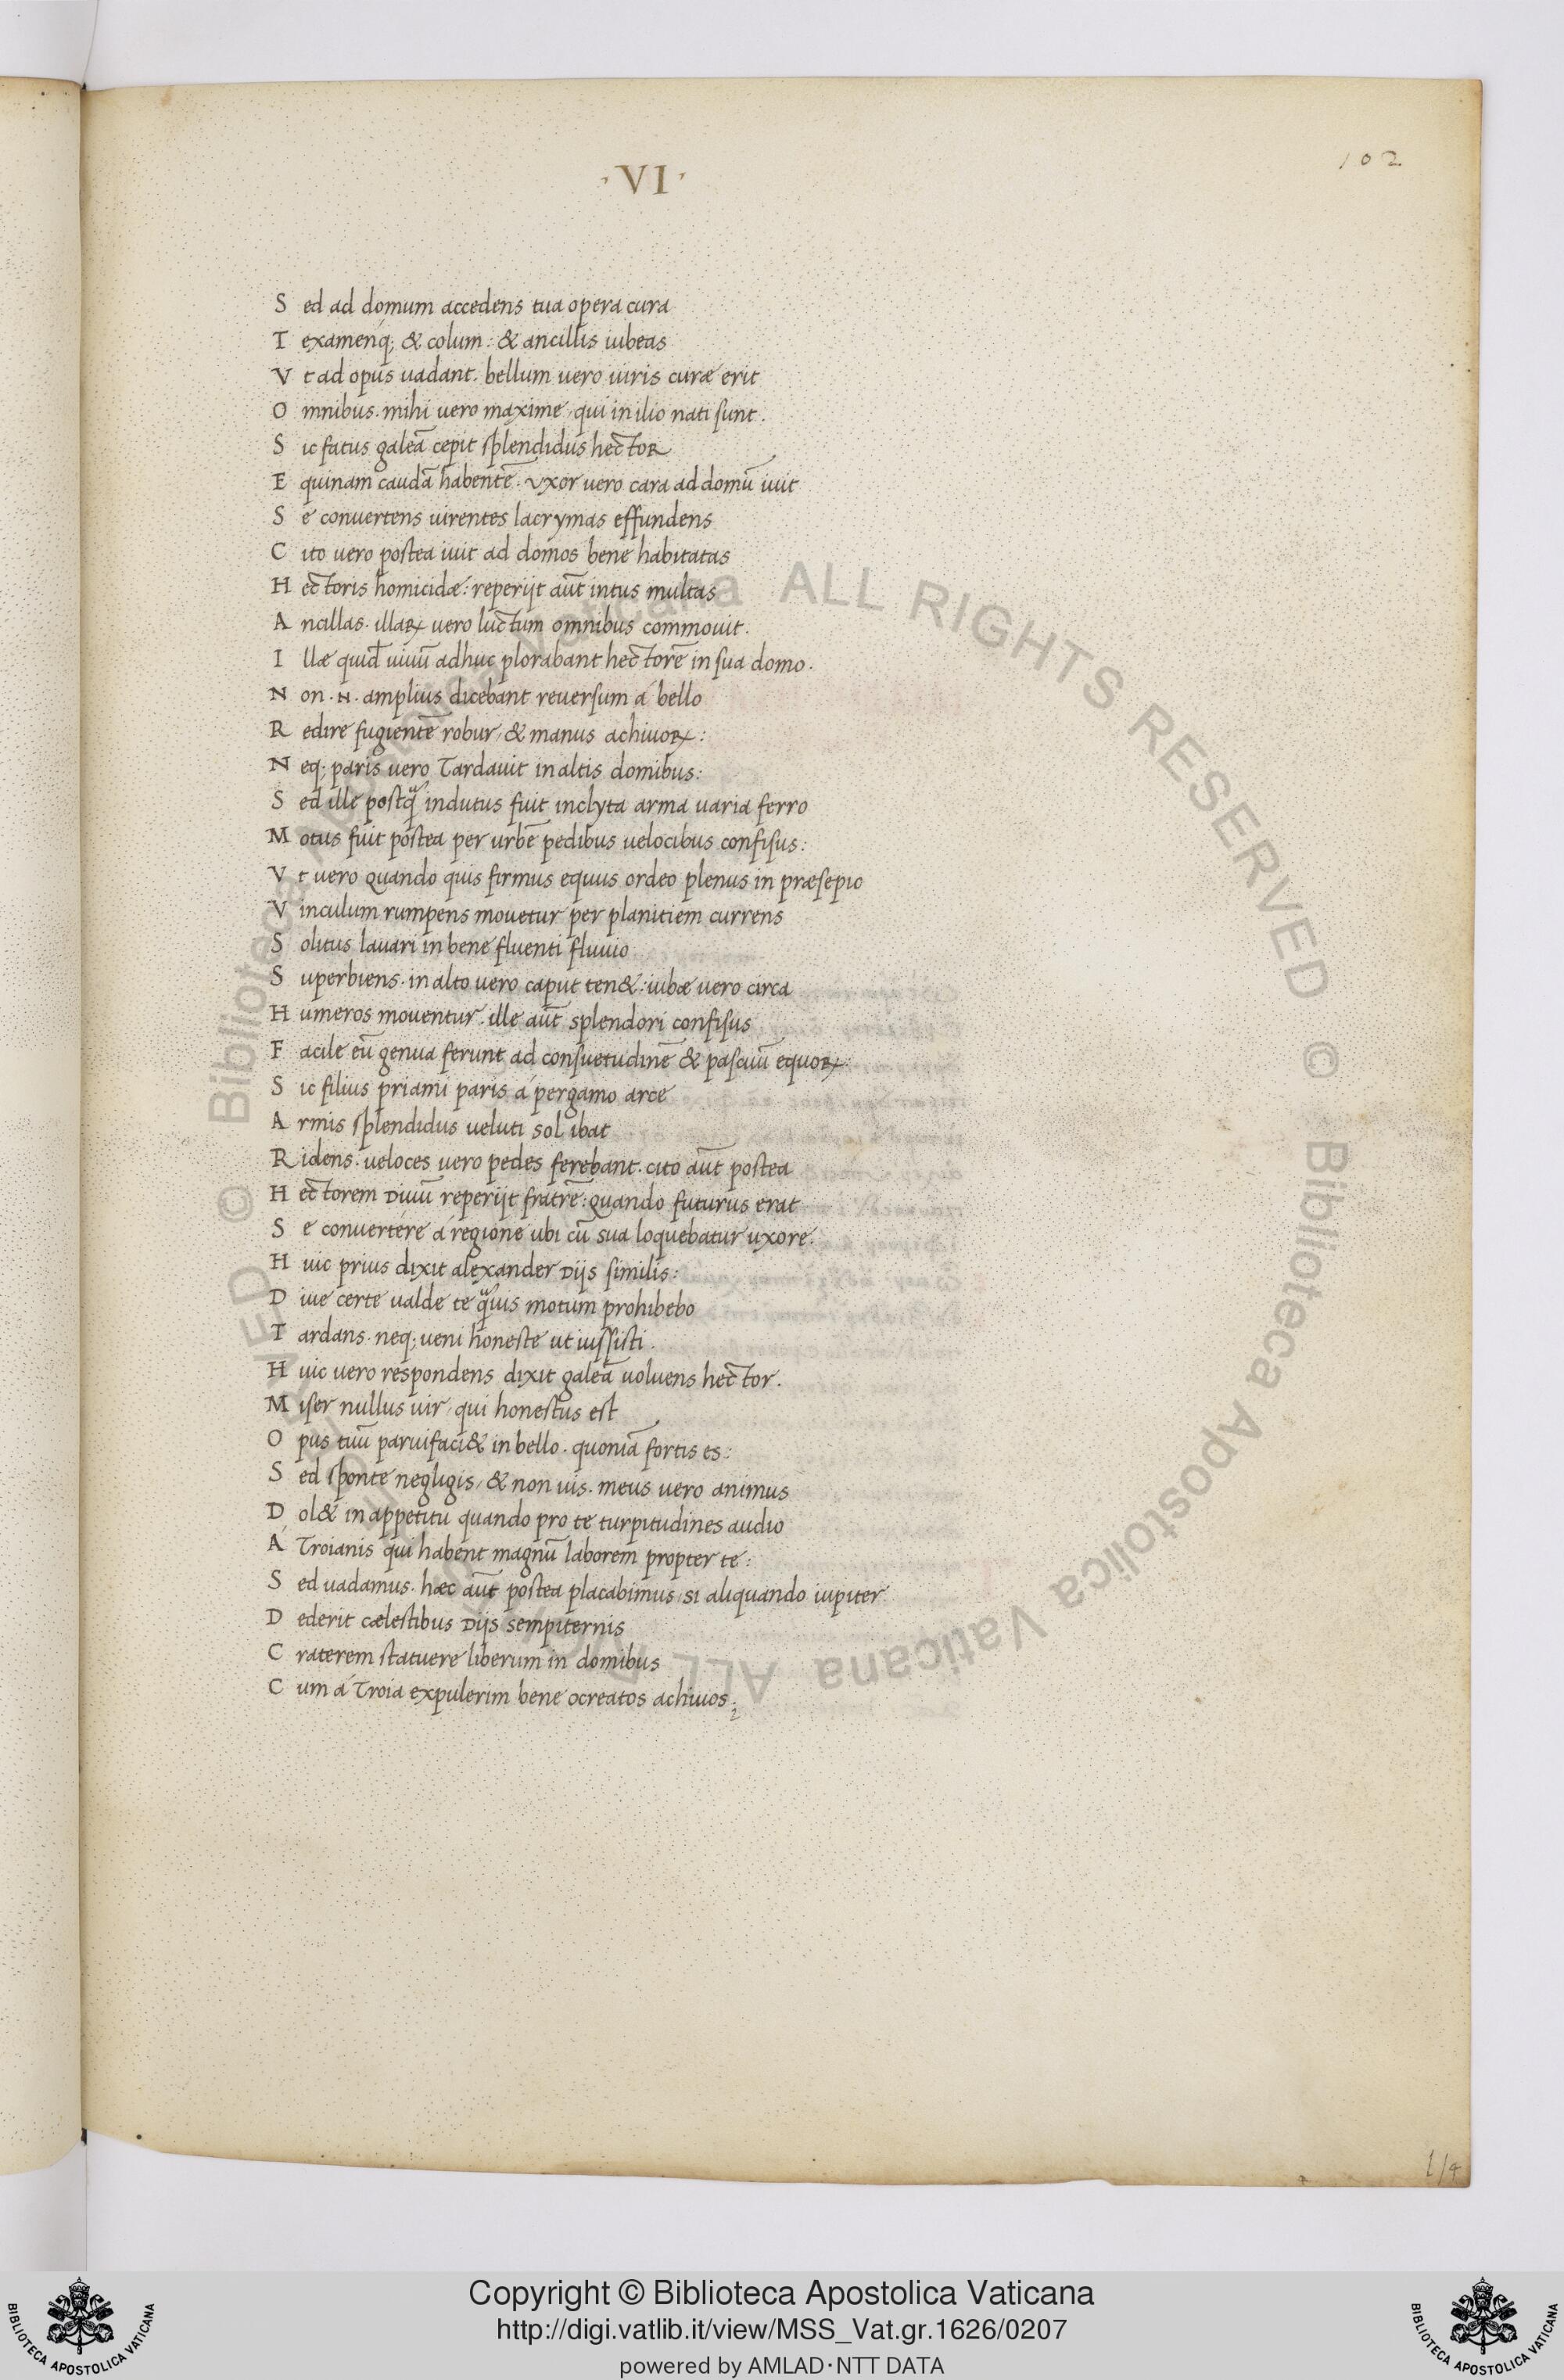 ·VI·
102
Sed ad domum accedens tua opera cura
Texamenq; & colum: & ancillis iubeas
Vt ad opus uadant. bellum uero uiris curæ erit
Omnibus. mihi uero maxime, qui in ilio nati sunt.
Sic fatus galeā cepit splendidus hector
Equinam caudā habentē. vxor uero cara ad domū iuit
Se conuertens uirentes lacrymas effundens
Cito uero postea iuit ad domos bene habitatas
Hectoris homicidæ: reperijt aūt intus multas
Ancillas. illaꝝ uero luctum omnibus commouit.
Illæ quid̄ uiuū adhuc plorabant hectorē in sua domo.
Non .N. amplius dicebant reuersum á bello
Redire fugientē robur, & manus achiuoꝝ:
Neq; paris uero tardauit in altis domibus:
Sed ille postq̃ indutus fuit inclyta arma uaria ferro
Motus fuit postea per urbē pedibus uelocibus confisus:
Vt uero quando quis firmus equus ordeo plenus in præsepio
Vinculum rumpens mouetur per planitiem currens
Solitus lauari in bene fluenti fluuio
Superbiens. in alto uero caput ten&: iubæ uero circa
Humeros mouentur. ille aūt splendori confisus
Facile eū genua ferunt ad consuetudinē & pascuū equoꝝ:
Sic filius priami paris á pergamo arce
Armis splendidus ueluti sol ibat
Ridens. ueloces uero pedes ferebant. cito aūt postea
Hectorem Diuū reperijt fratrē: quando futurus erat
Se conuertere á regione ubi cū sua loquebatur uxore.
Huic prius dixit alexander Dijs similis:
Diue certe ualde te q̃uis motum prohibebo
Tardans. neq; ueni honeste ut iussisti.
Huic uero respondens dixit galeā uoluens hector.
Miser nullus uir, qui honestus est
Opus tuū paruifaci& in bello. quoniā fortis es:
Sed sponte negligis, & non uis. meus uero animus
Dol& in appetitu quando pro te turpitudines audio
Á Troianis qui habent magnū laborem propter te:
Sed uadamus. hæc aūt postea placabimus, si aliquando iupiter
Dederit cælestibus Dijs sempiternis
Craterem statuere liberum in domibus
Cum á Troia expulerim bene ocreatos achiuos;
Copyright © Biblioteca Apostolica Vaticana
http://digi.vatlib.it/view/MSS_Vat.gr.1626/0207
powered by AMLAD·NTT DATA